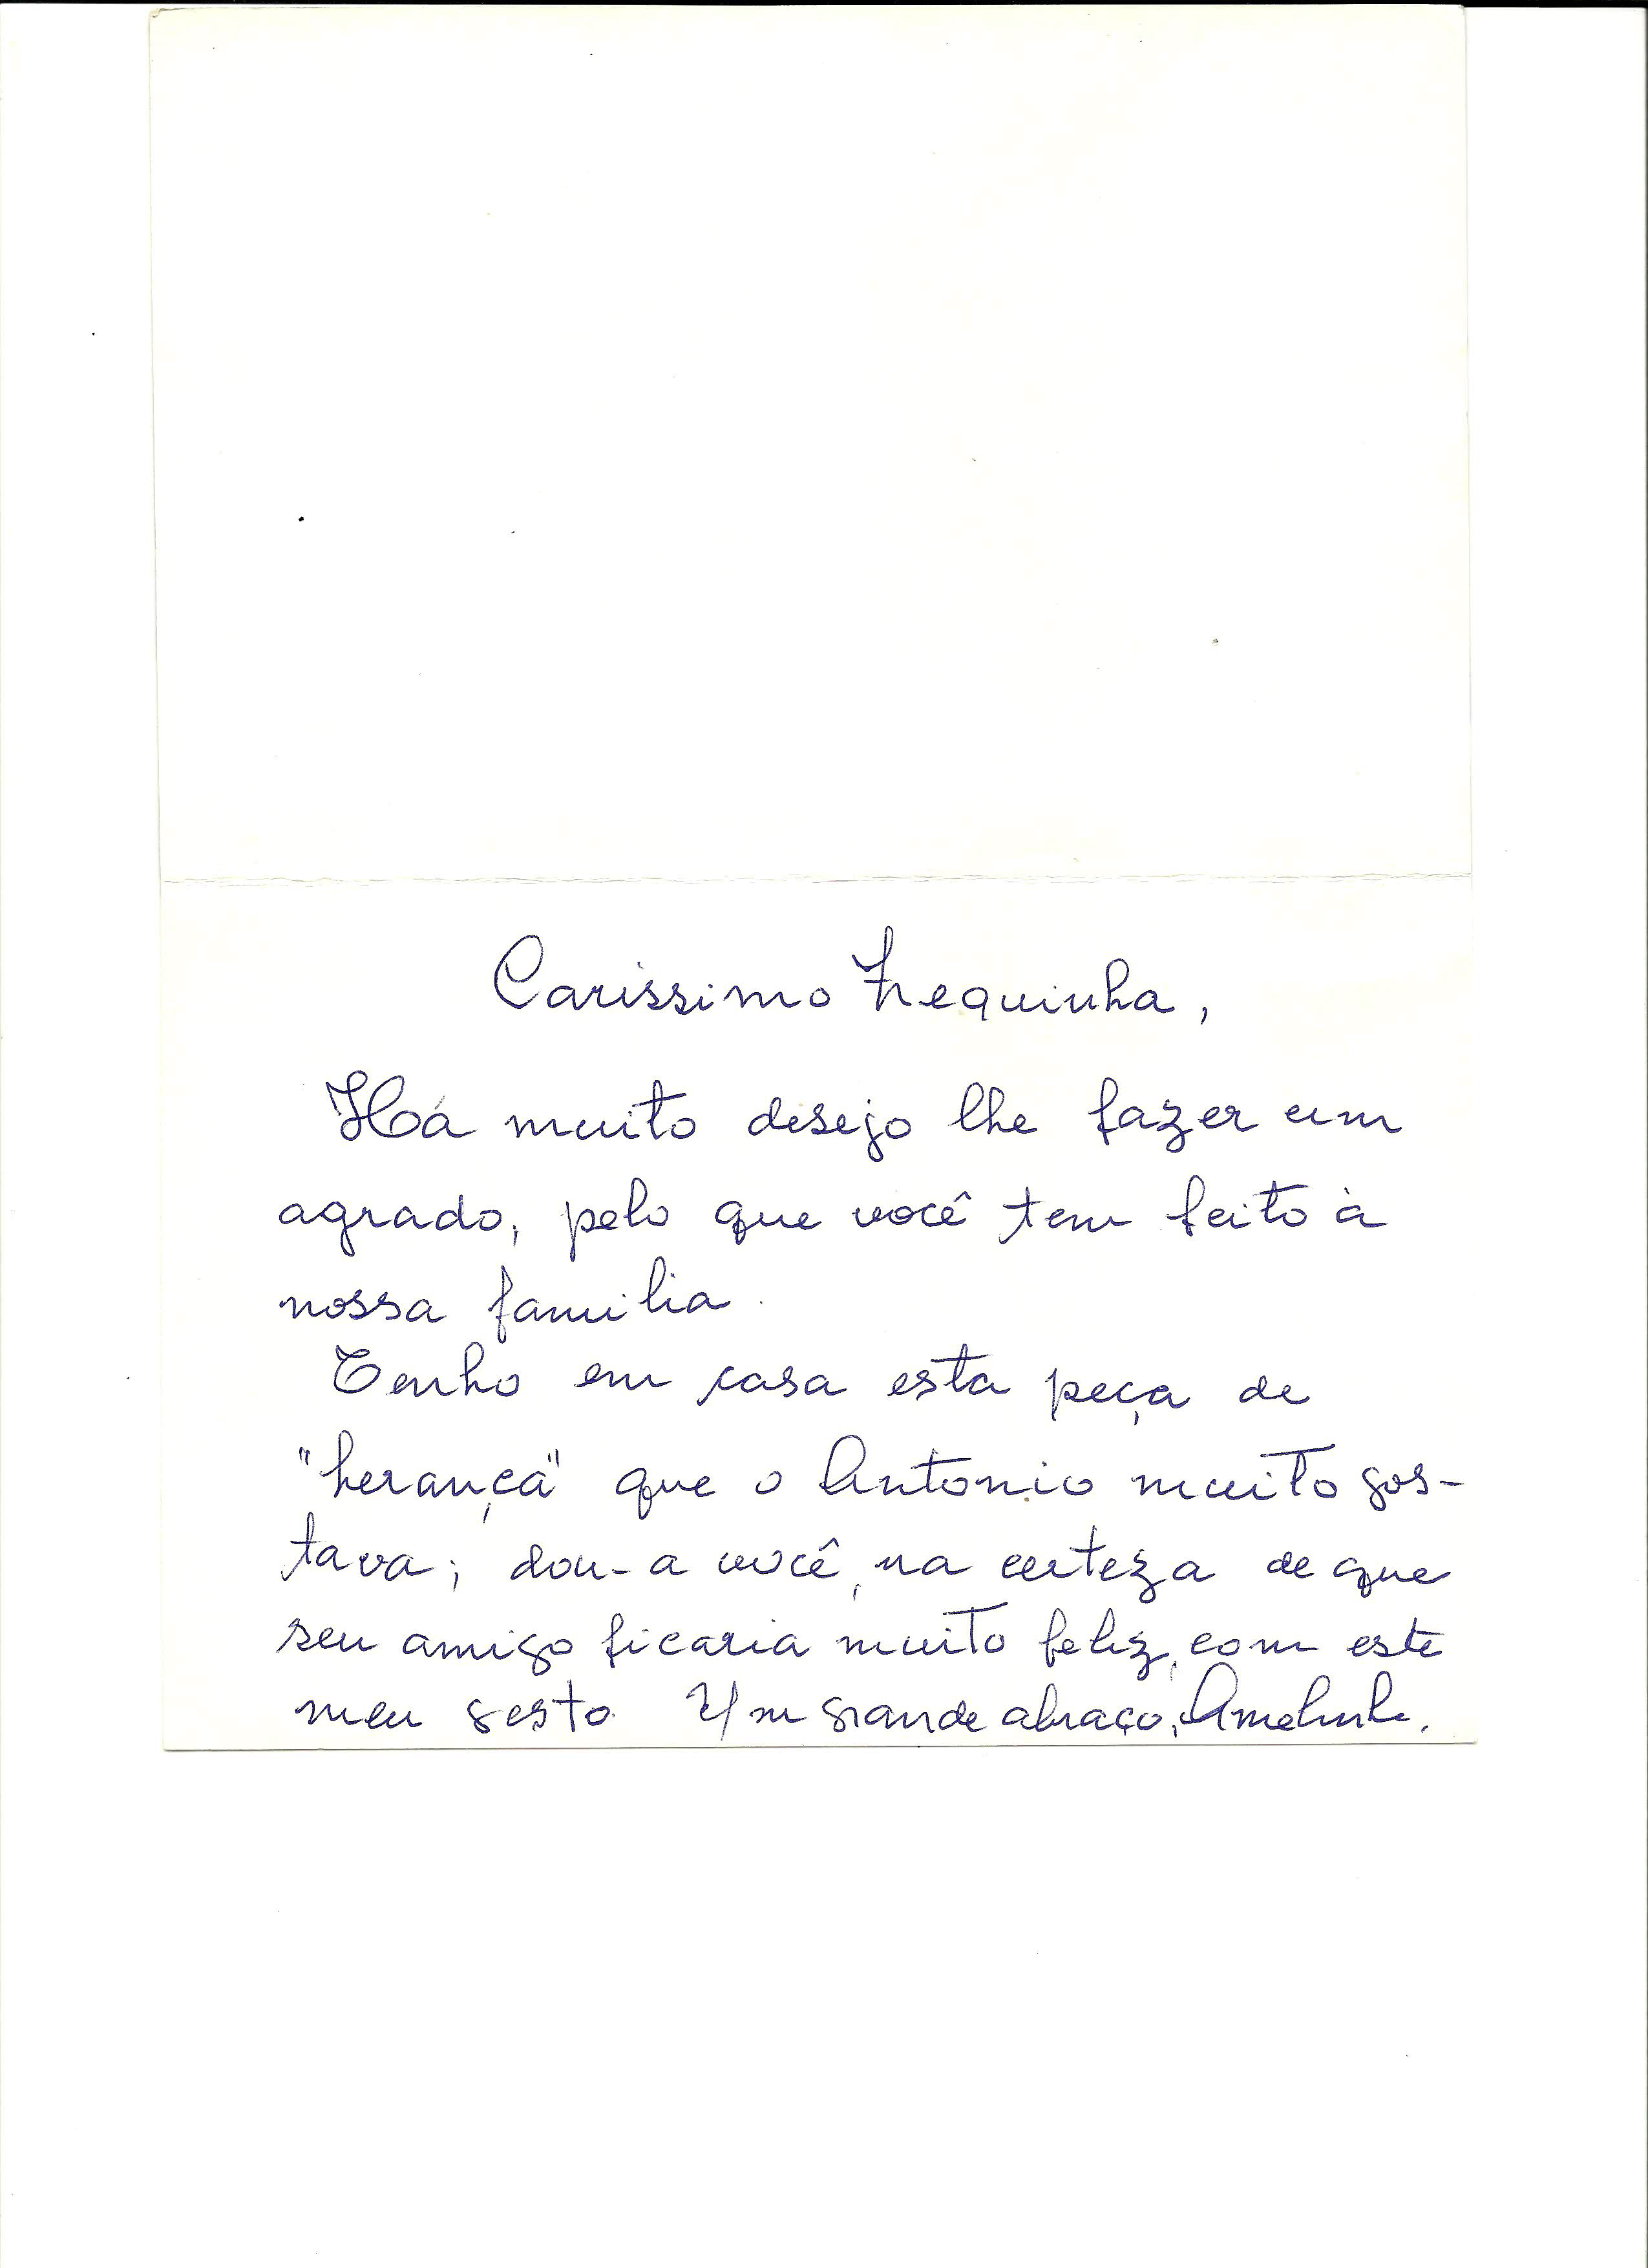 Carissimo Zequinha,
Há muito desejo lhe fazer um
agrado, pelo que você tem feito à
nossa familia.
Tenho em casa esta peça de
"herança" que o Antonio muito gos-
tava; dou-a você, na certeza de que
seu amigo ficaria muito feliz, com este
meu gesto. Um grande abraço, Amelinha.